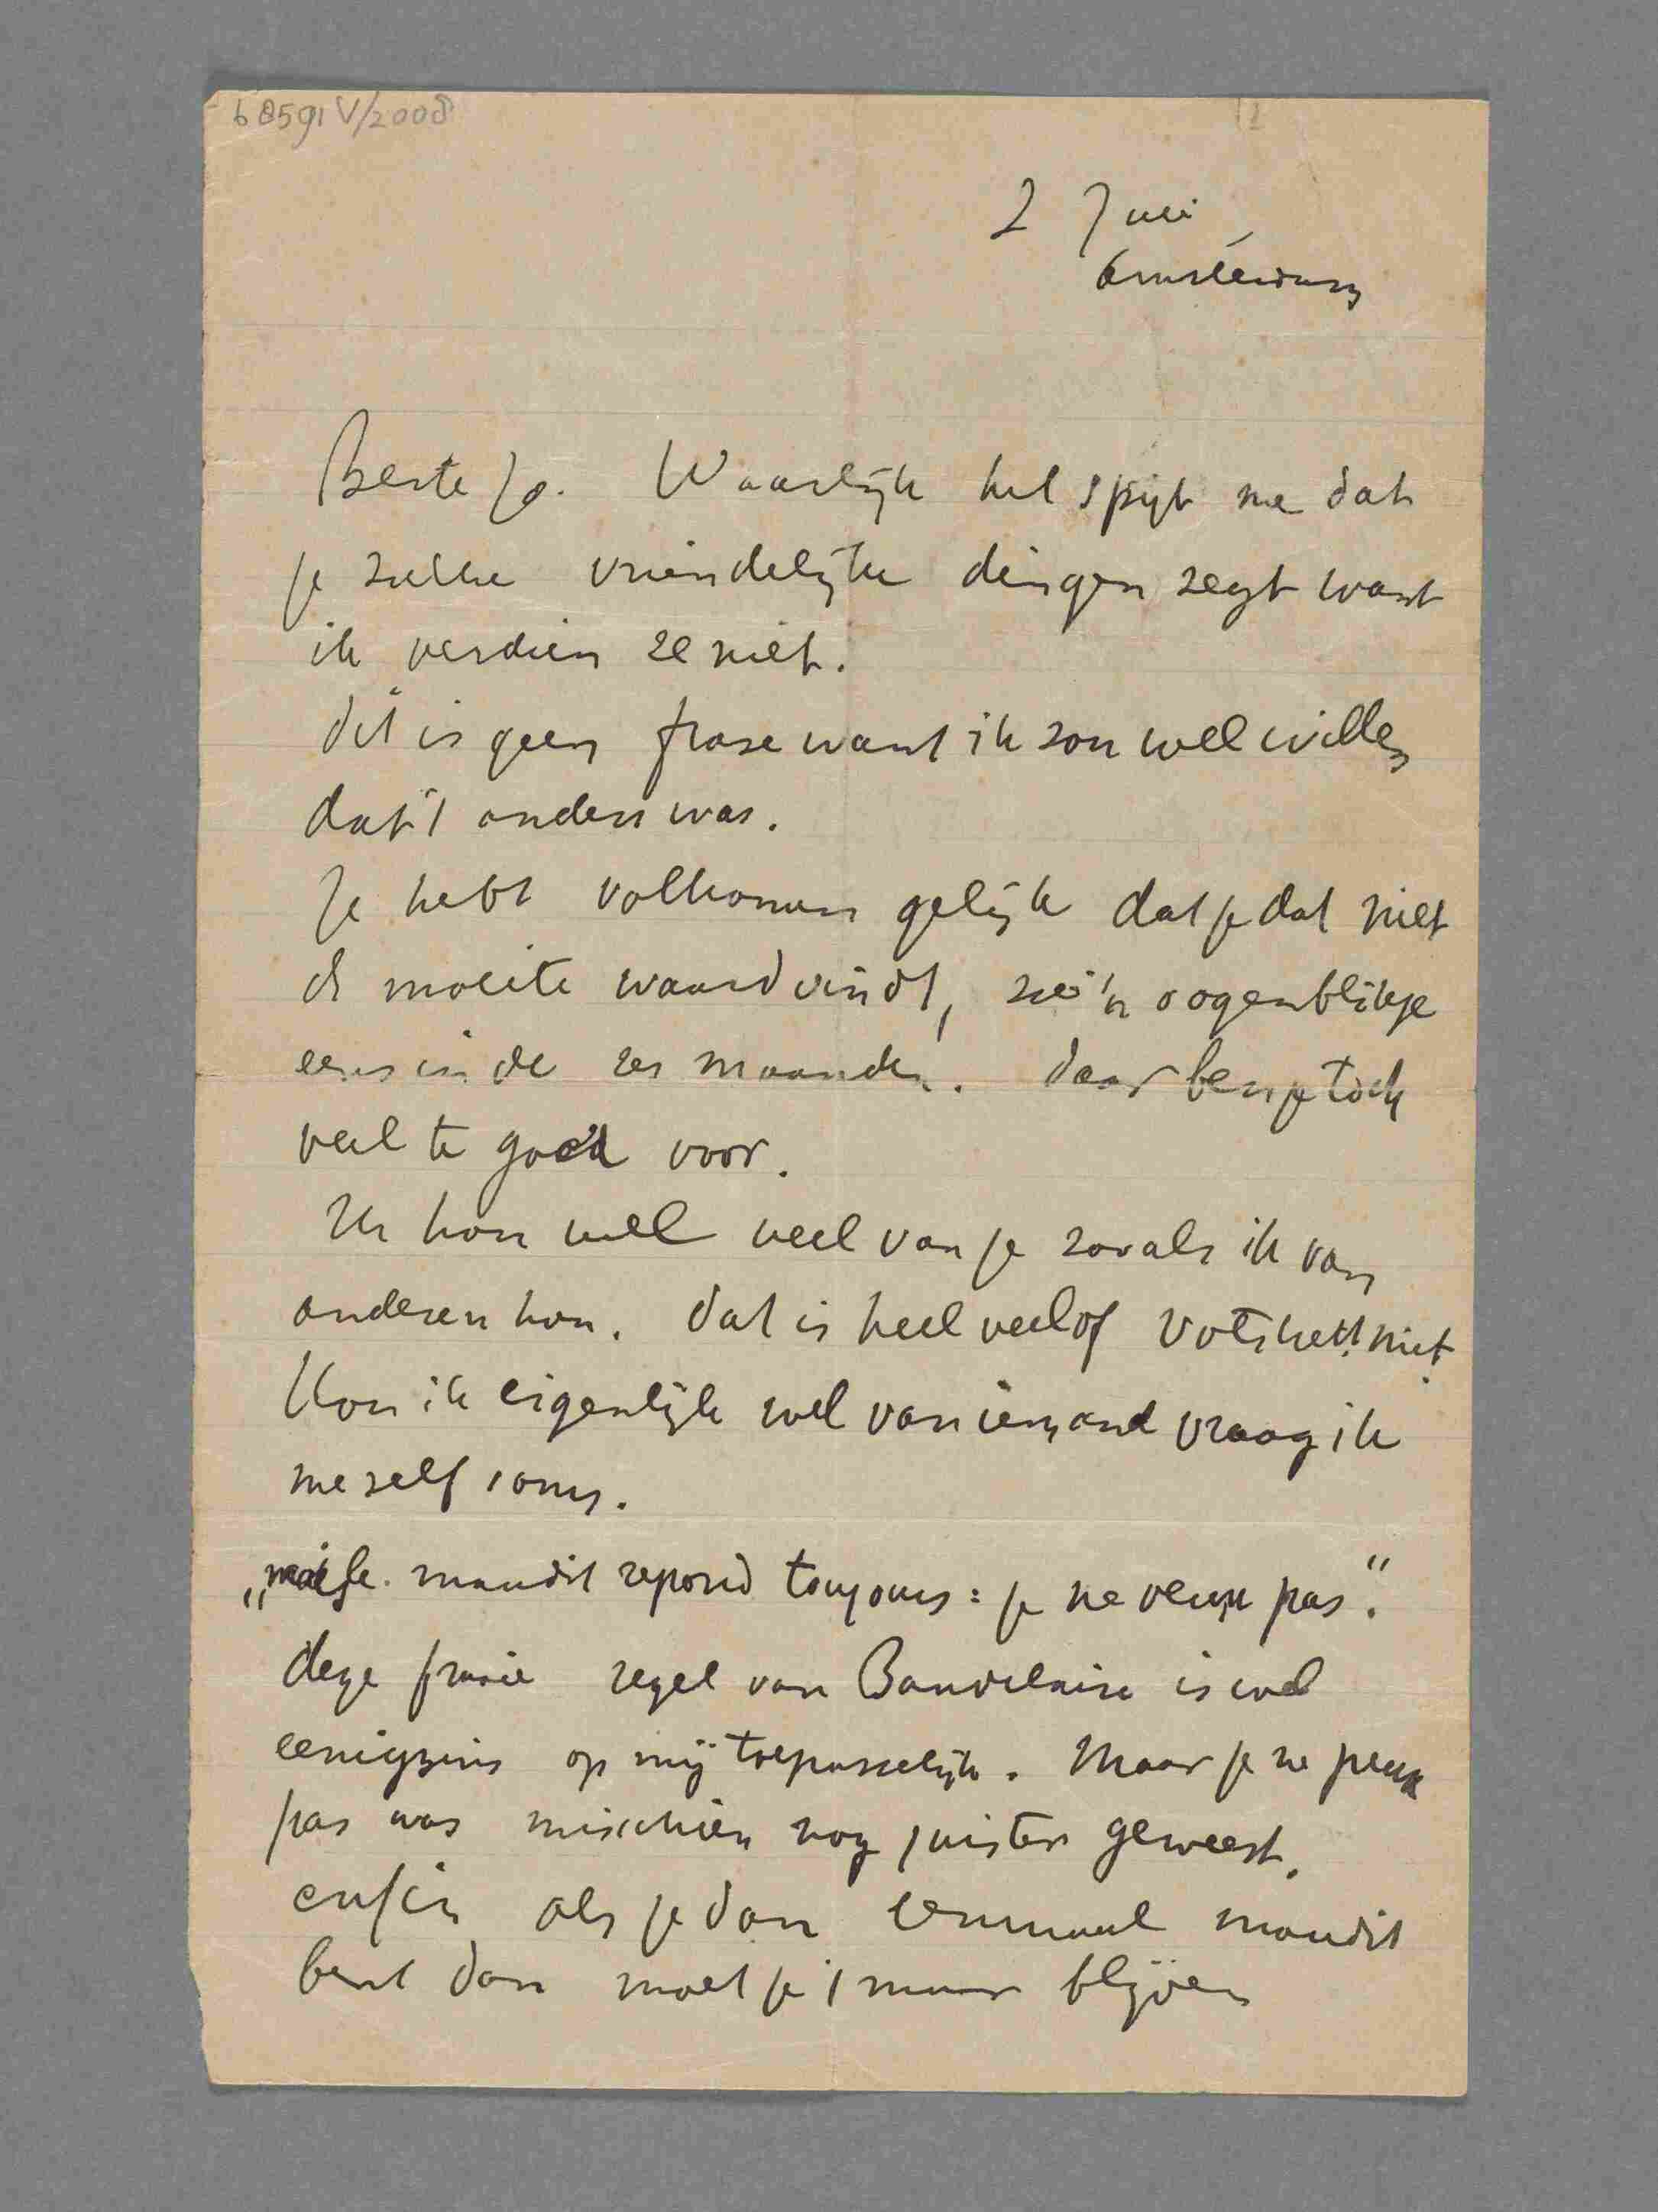 b 8591 V/2008
2 Juli
Amsterdam
Beste Jo. Waarlijk het spijt me dat
je zulke vriendelijke dingen zegt want
ik verdien ze niet.
dit is geen frase want ik zou wel willen
dat 't anders was.
Je hebt volkomen gelijk dat je dat niet
de moeite waard vindt, zoo'n oogenblikje
eens in de zes maanden. daar ben je toch
veel te goed voor.
Ik hou wel veel van je zooals ik van
anderen hou. dat is heel veel of niet.
Hou ik eigenlijk wel van iemand vraag ik
mezelf soms.
„mais le maudit repond toujours: je ne veux pas".
deze fraaie regel van Baudelaire is wel
eenigzins op mij toepasselijk. Maar je ne peux
pas was mischien nog juister geweest.
enfin als je dan eenmaal maudit
bent dan moet je 't maar blijven